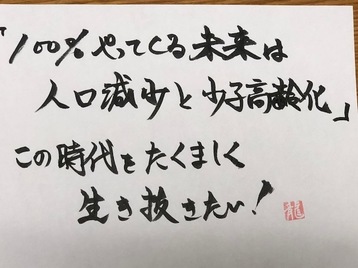 「100%やってくる未来は
人口減少と少子高齢化」
この時代をたくましく
生き抜きたい!